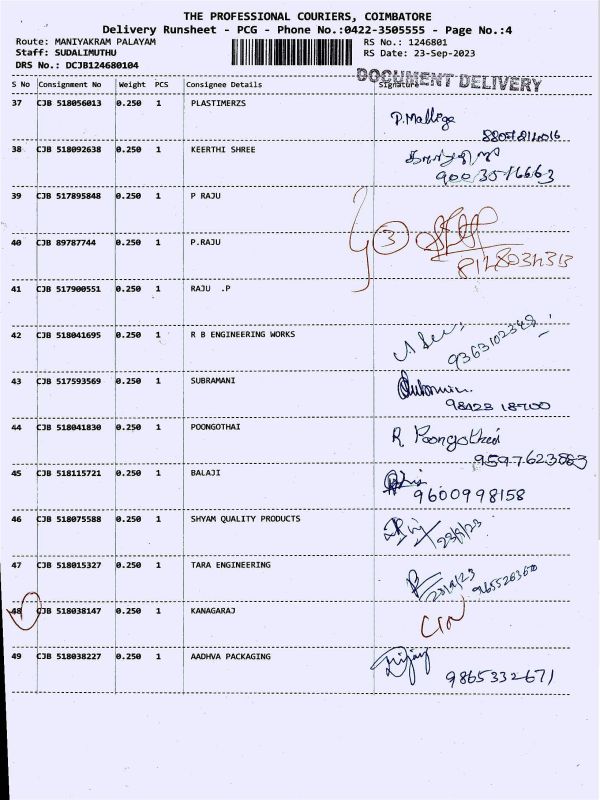 THE PROFESSIONAL COURIERS, COIMBATORE
Delivery Runsheet - PCG - Phone No.:0422-3505555 - Page No.:4
Route: MANIYAKRAM PALAYAM
RS No.: 1246801
Staff: SUDALIMUTHU
RS Date: 23-Sep-2023
DRS No.: DCJB124680104
DOCUMENT DELIVERY
S No Consignment No Weight PCS Consignee Details Signature
37 CJB 518056013 0.250 1 PLASTIMERZS
P. Mallega
38 CJB 518092638 0.250 1 KEERTHI SHREE
900 3516663
39 CJB 517895848 0.250 1 P RAJU
40 CJB 89787744 0.250 1 P.RAJU
3
8148034313
41 CJB 517900551 0.250 1 RAJU .P
42 CJB 518041695 0.250 1 R B ENGINEERING WORKS
9363102348
43 CJB 517593569 0.250 1 SUBRAMANI
98423 18700
44 CJB 518041830 0.250 1 POONGOTHAI
R Poongothai
9597623883
45 CJB 518115721 0.250 1 BALAJI
9600998158
46 CJB 518075588 0.250 1 SHYAM QUALITY PRODUCTS
23/9/23
47 CJB 518015327 0.250 1 TARA ENGINEERING
23/9/23
48 CJB 518038147 0.250 1 KANAGARAJ
49 CJB 518038227 0.250 1 AADHVA PACKAGING
Vijay
9865332671